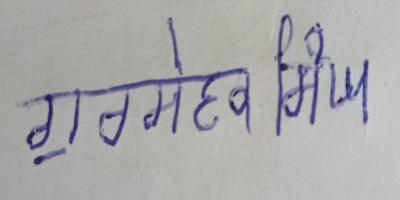 ਗੁਰਸੇਵਕ ਸਿੰਘ